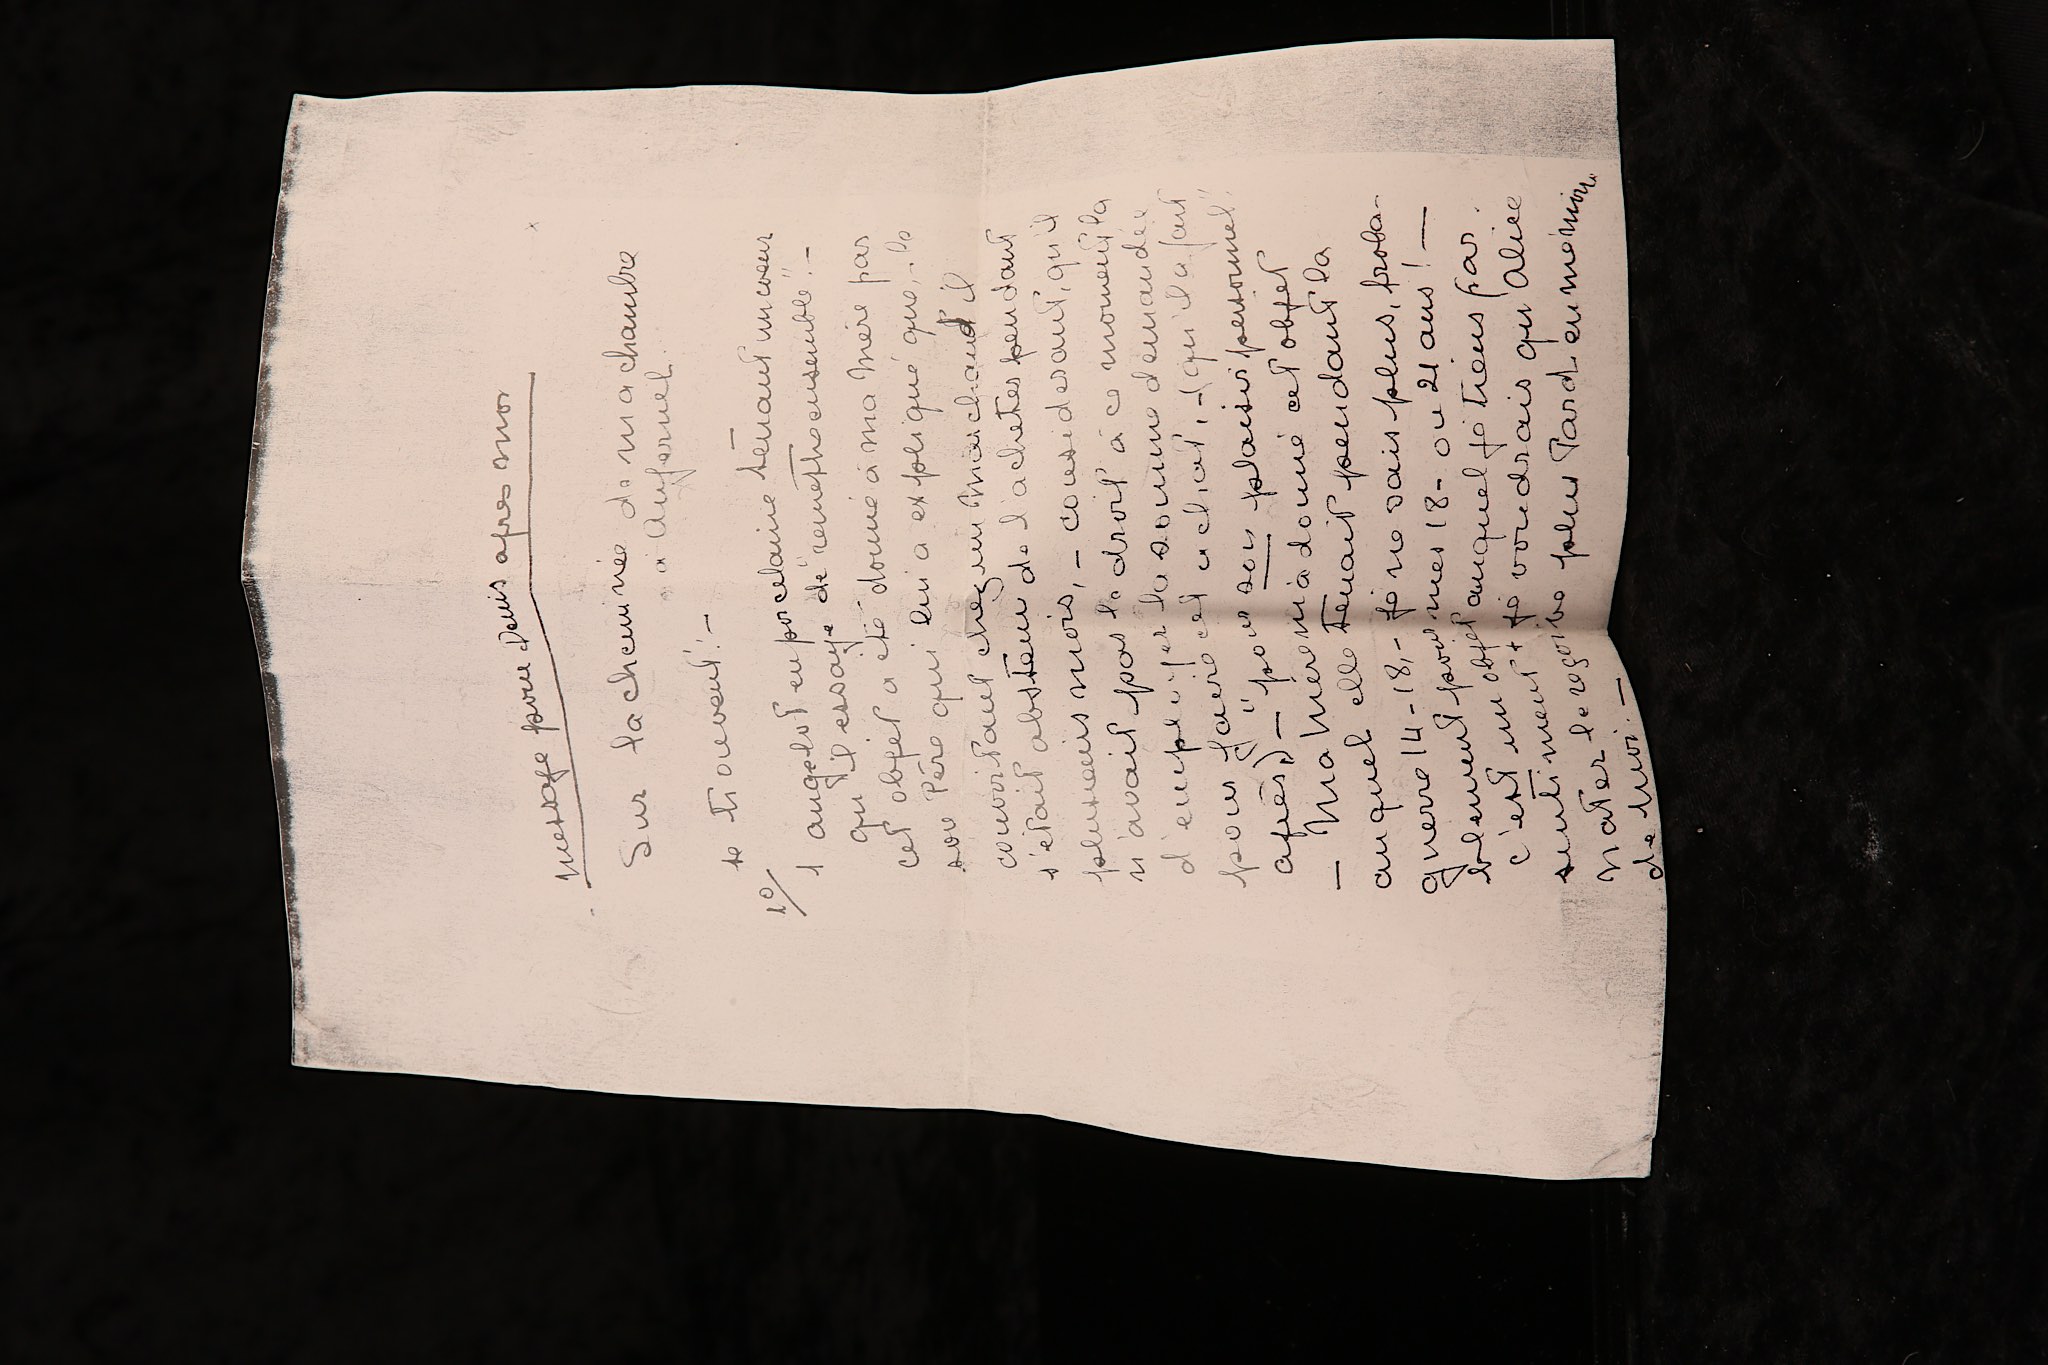 message pour Denis apres moi
Sur la cheminée de ma chambre
à
se trouvent: —
1°/
1 angelot en porcelaine tenant un coeur
qu'il essaye de "remettre ensemble". —
cet objet a été donné à ma Mère par
son Père qui lui a expliqué que, — le
convoitant chez un marchand il
s'était abstenu de l'acheter pendant
plusieurs mois, — considérant, qu'il
n'avait pas le droit à ce moment là
d'employer la somme demandée
pour faire cet achat, — (qu'il a fait
après) — "pour son plaisir personnel".
— Ma Mère m'a donné cet objet
auquel elle tenait pendant la
guerre 14-18, — je ne sais plus, proba-
blement pour mes 18 - ou 21 ans! —
c'est un objet auquel je tiens par
sentiment + je voudrais qu' Alice
Mater le reçoive plus tard en mémoire
de moi. —